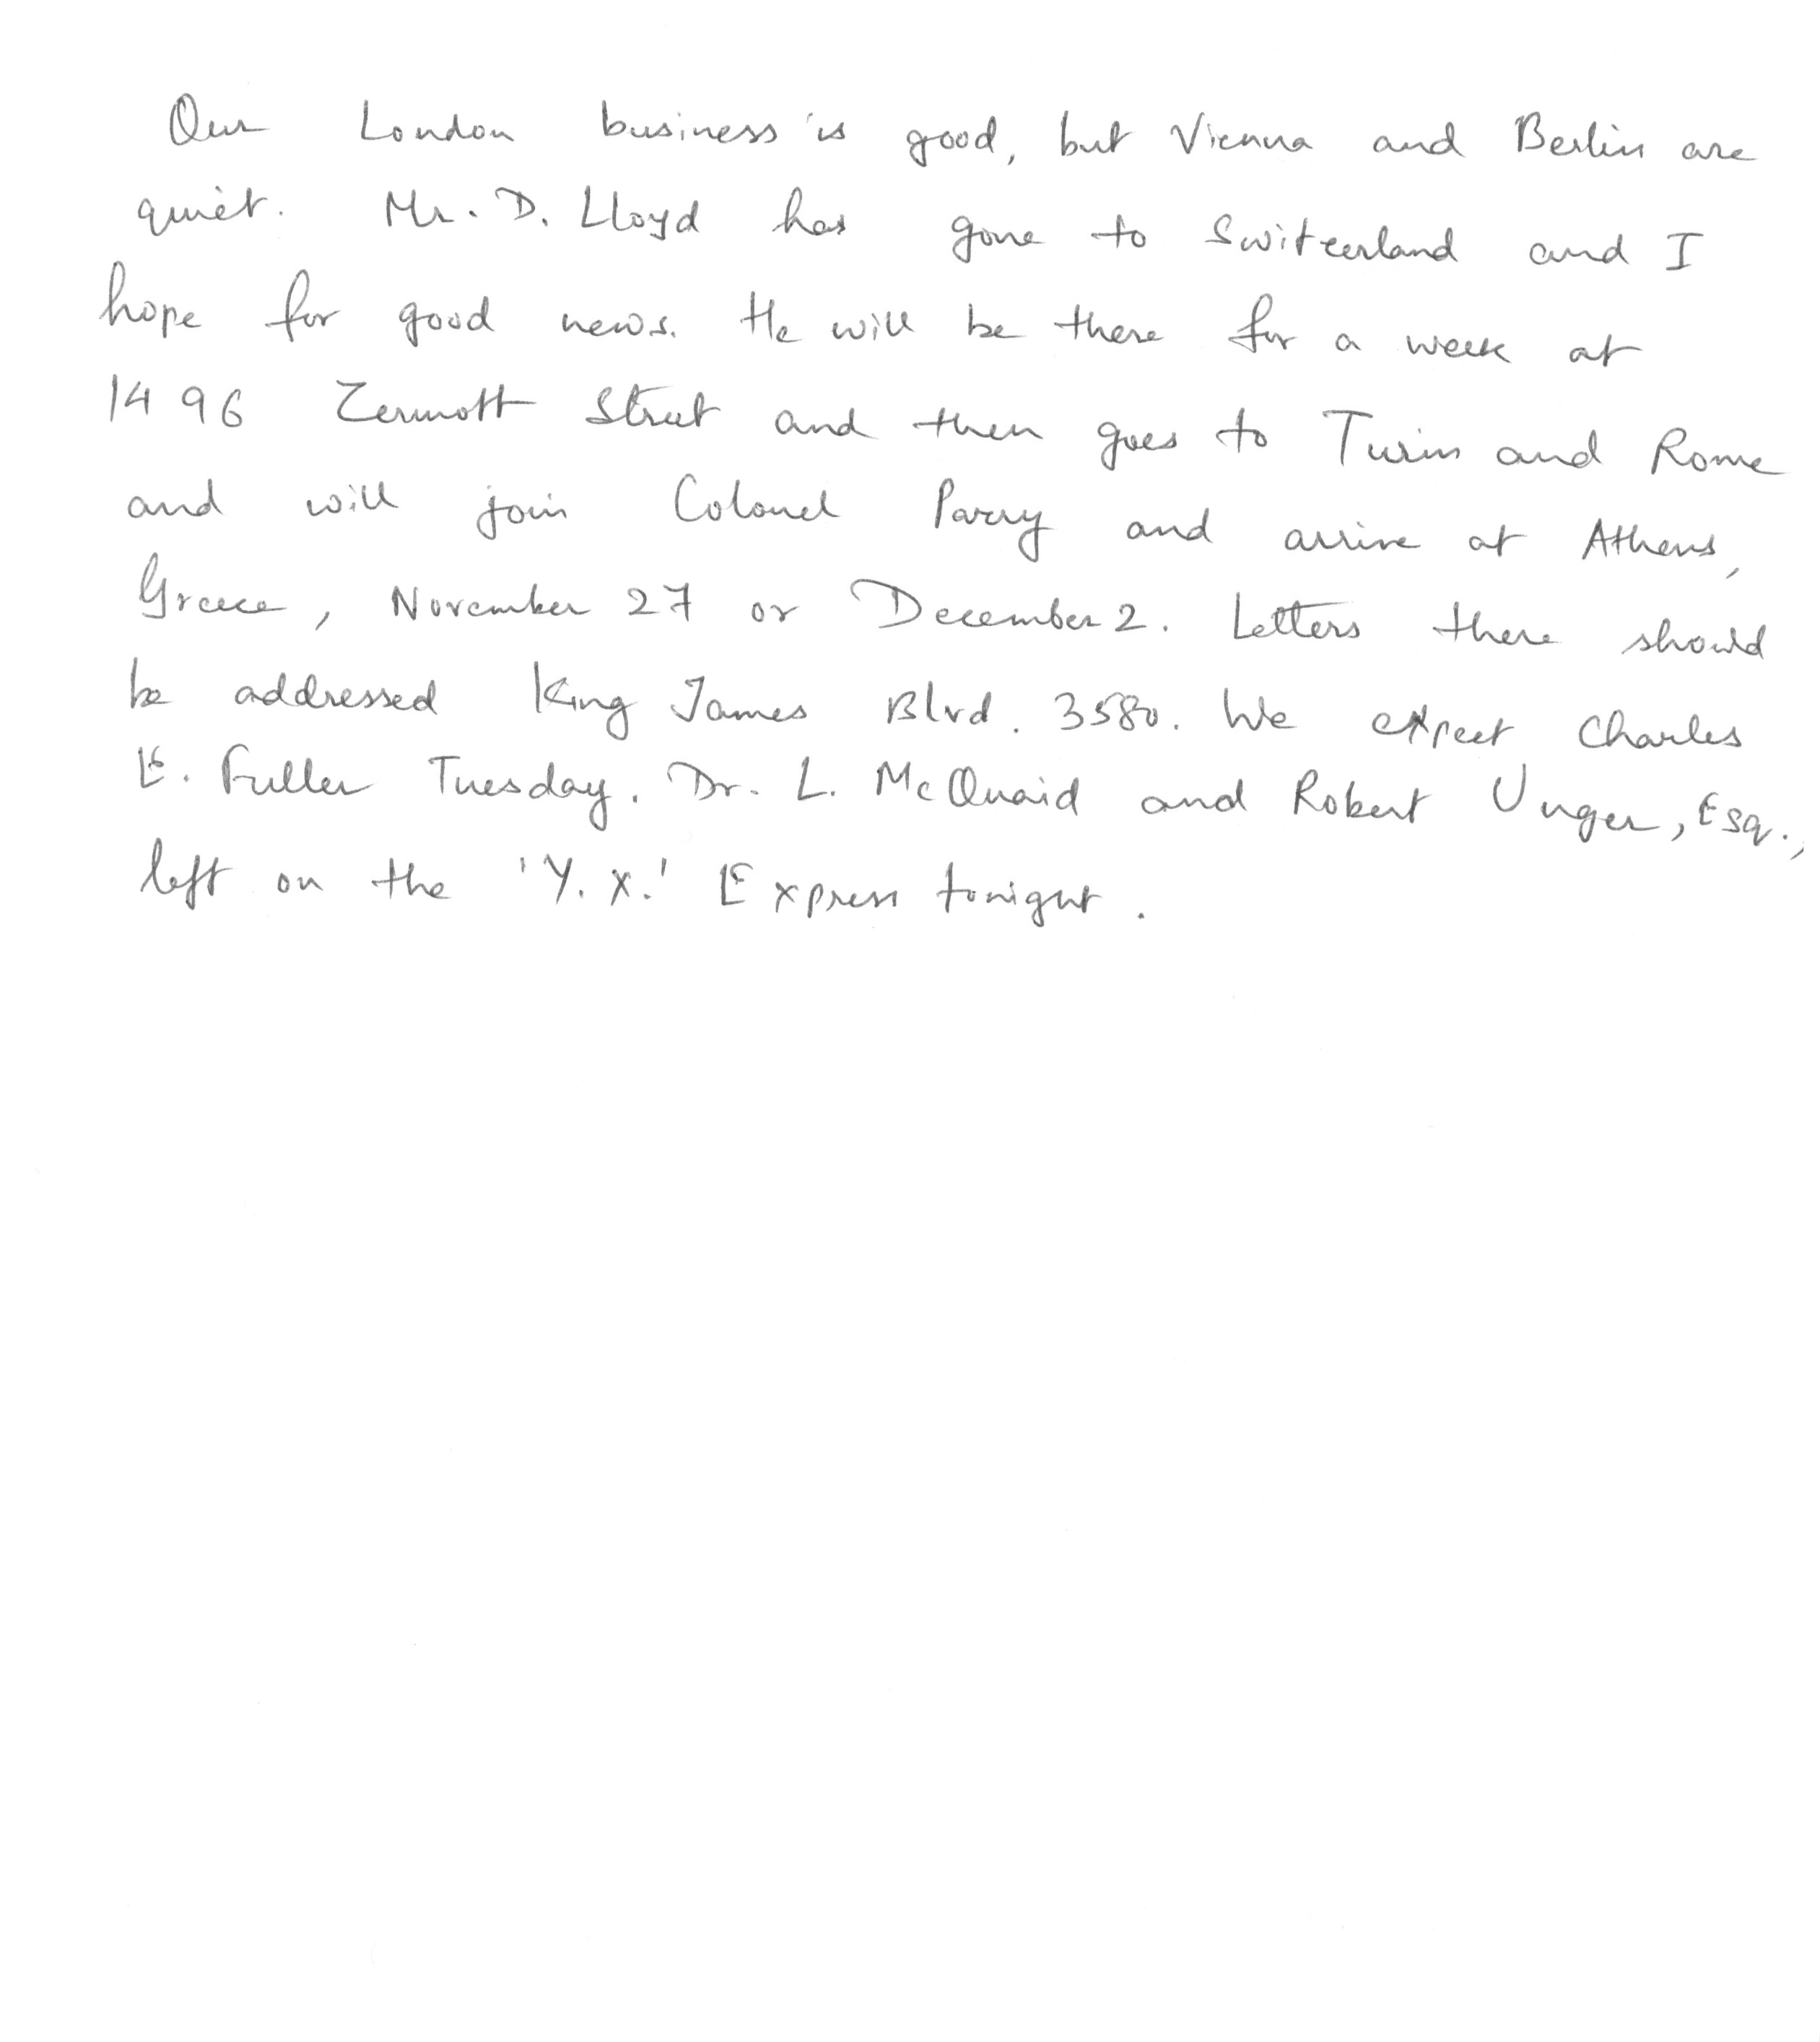 Our London business is good, but Vienna and Berlin are
quiet. Mr. D. Lloyd has gone to Switzerland and I
hope for good news. He will be there for a week at
1496 Zermott Street and then goes to Turin and Rome
and will join Colonel Parry and arrive at Athens,
Greece, November 27 or December 2. Letters there should
be addressed King James Blvd. 3580. We expect Charles
E. Fuller Tuesday. Dr. L. McQuaid and Robert Unger, Esq.,
left on the 'Y.X.' Express tonight.